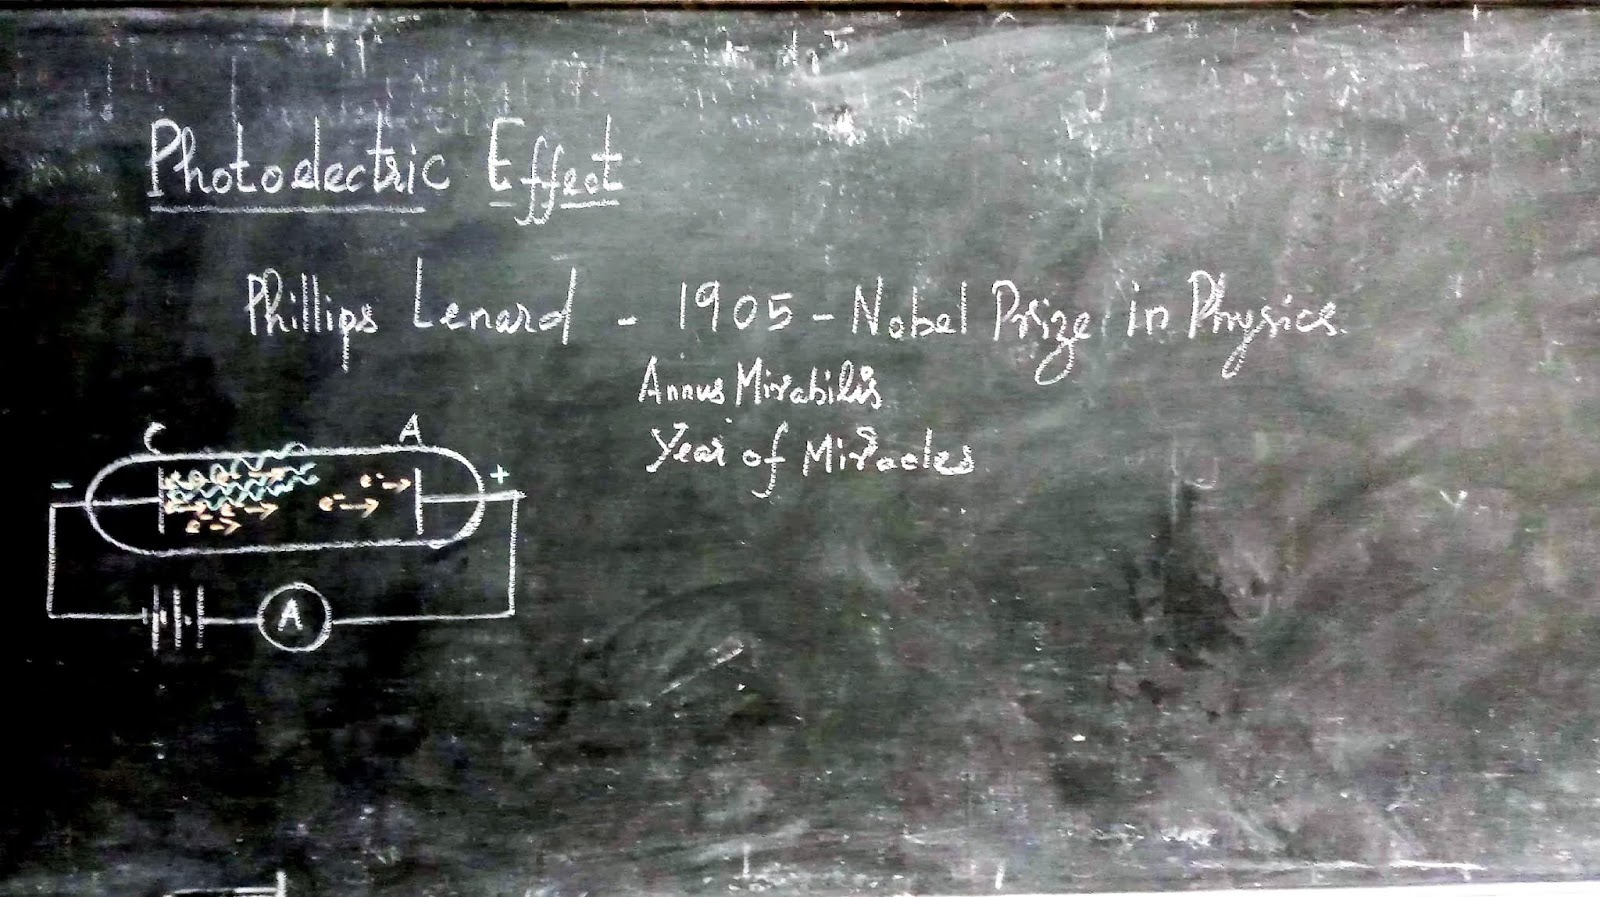 Photoelectric Effect
Phillips Lenard - 1905 - Nobel Prize in Physics.
Annus Mirabilis
Year of Miracles
C A
- +
e- → e- →
e- →
e- →
A